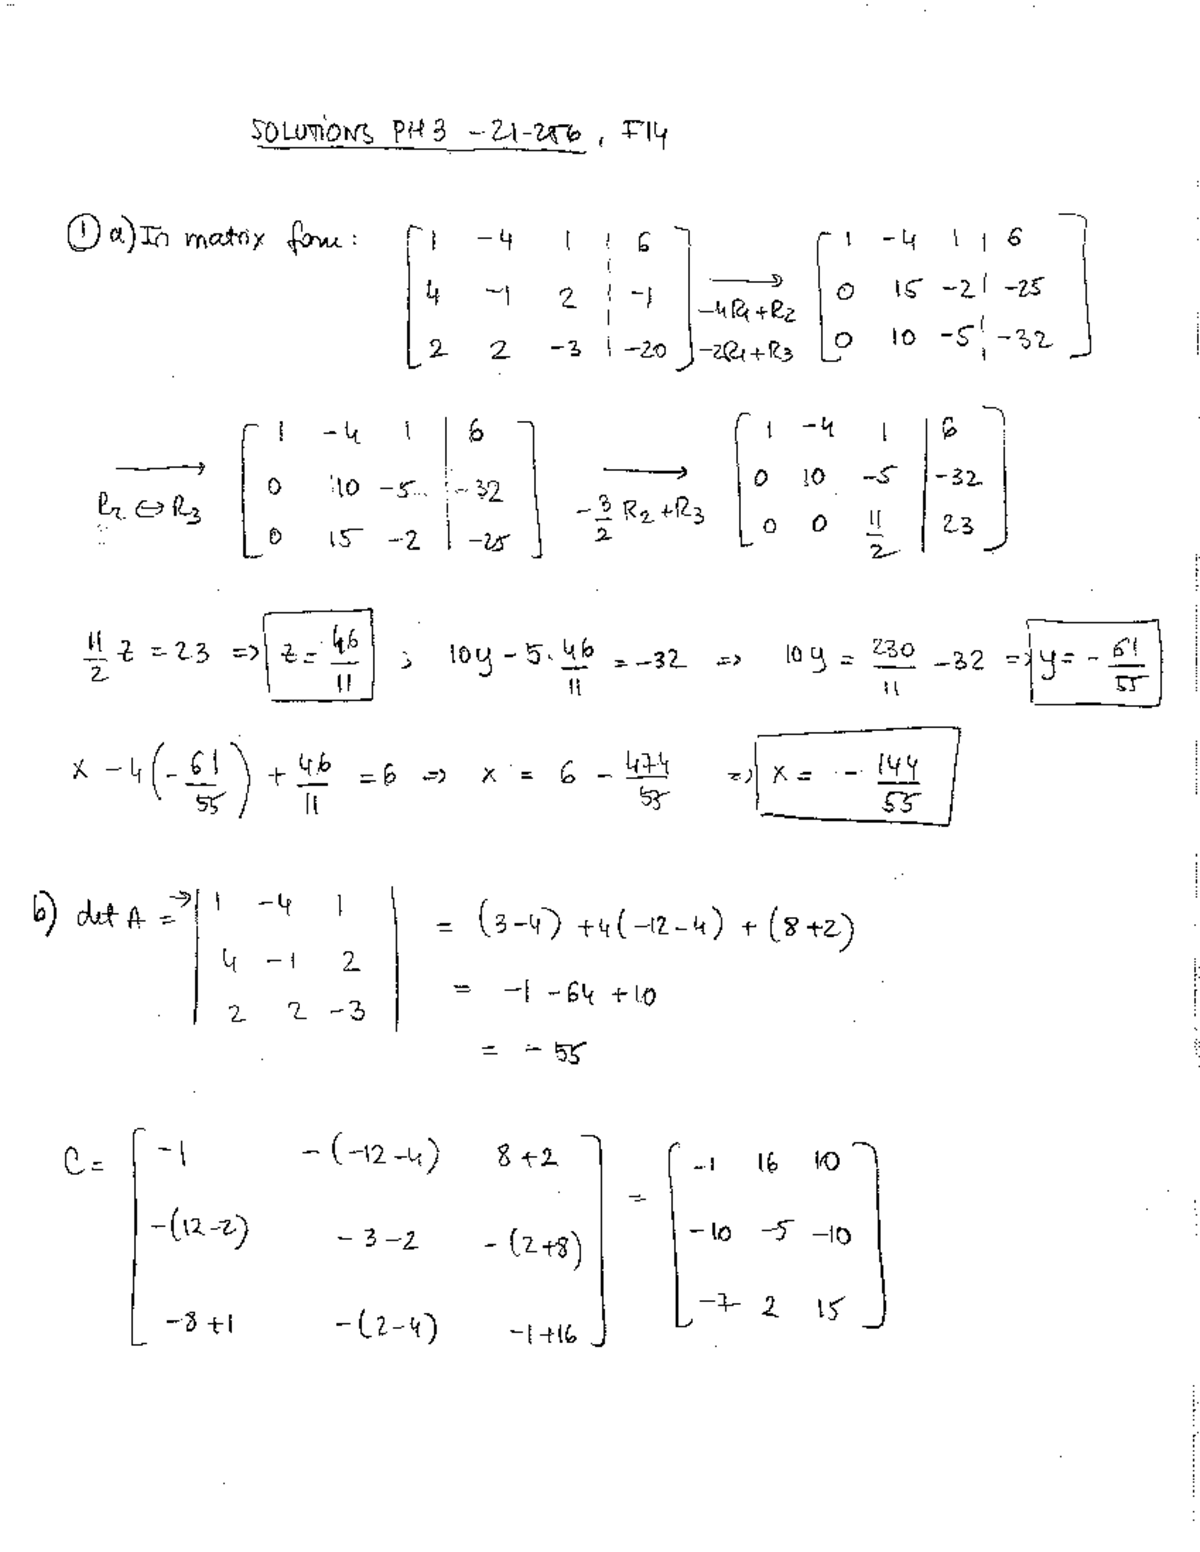 SOLUTIONS PH3 - 21-256, F14
① a) In matrix form: [ 1 -4 1 | 6 ; 4 -1 2 | -1 ; 2 2 -3 | -20 ] → -4R1+R2 -2R1+R3 [ 1 -4 1 | 6 ; 0 15 -2 | -25 ; 0 10 -5 | -32 ]
→ R2 ⇔ R3 [ 1 -4 1 | 6 ; 0 10 -5 | -32 ; 0 15 -2 | -25 ] → -3/2 R2 + R3 [ 1 -4 1 | 6 ; 0 10 -5 | -32 ; 0 0 11/2 | 23 ]
11/2 z = 23 => z = 46/11 ; 10y - 5 · 46/11 = -32 => 10y = 230/11 - 32 => y = - 61/55
x - 4(- 61/55) + 46/11 = 6 => x = 6 - 474/55 => x = - 144/55
b) det A = → | 1 -4 1 ; 4 -1 2 ; 2 2 -3 | = (3-4) + 4(-12-4) + (8+2)
= -1 - 64 + 10
= - 55
C = [ -1 -(-12-4) 8+2 ; -(12-2) -3-2 -(2+8) ; -8+1 -(2-4) -1+16 ] = [ -1 16 10 ; -10 -5 -10 ; -7 2 15 ]